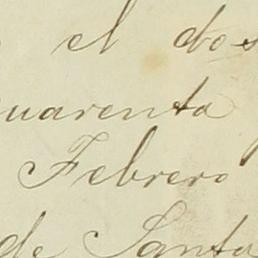 el dos
cuarenta
Febrero
de Santa